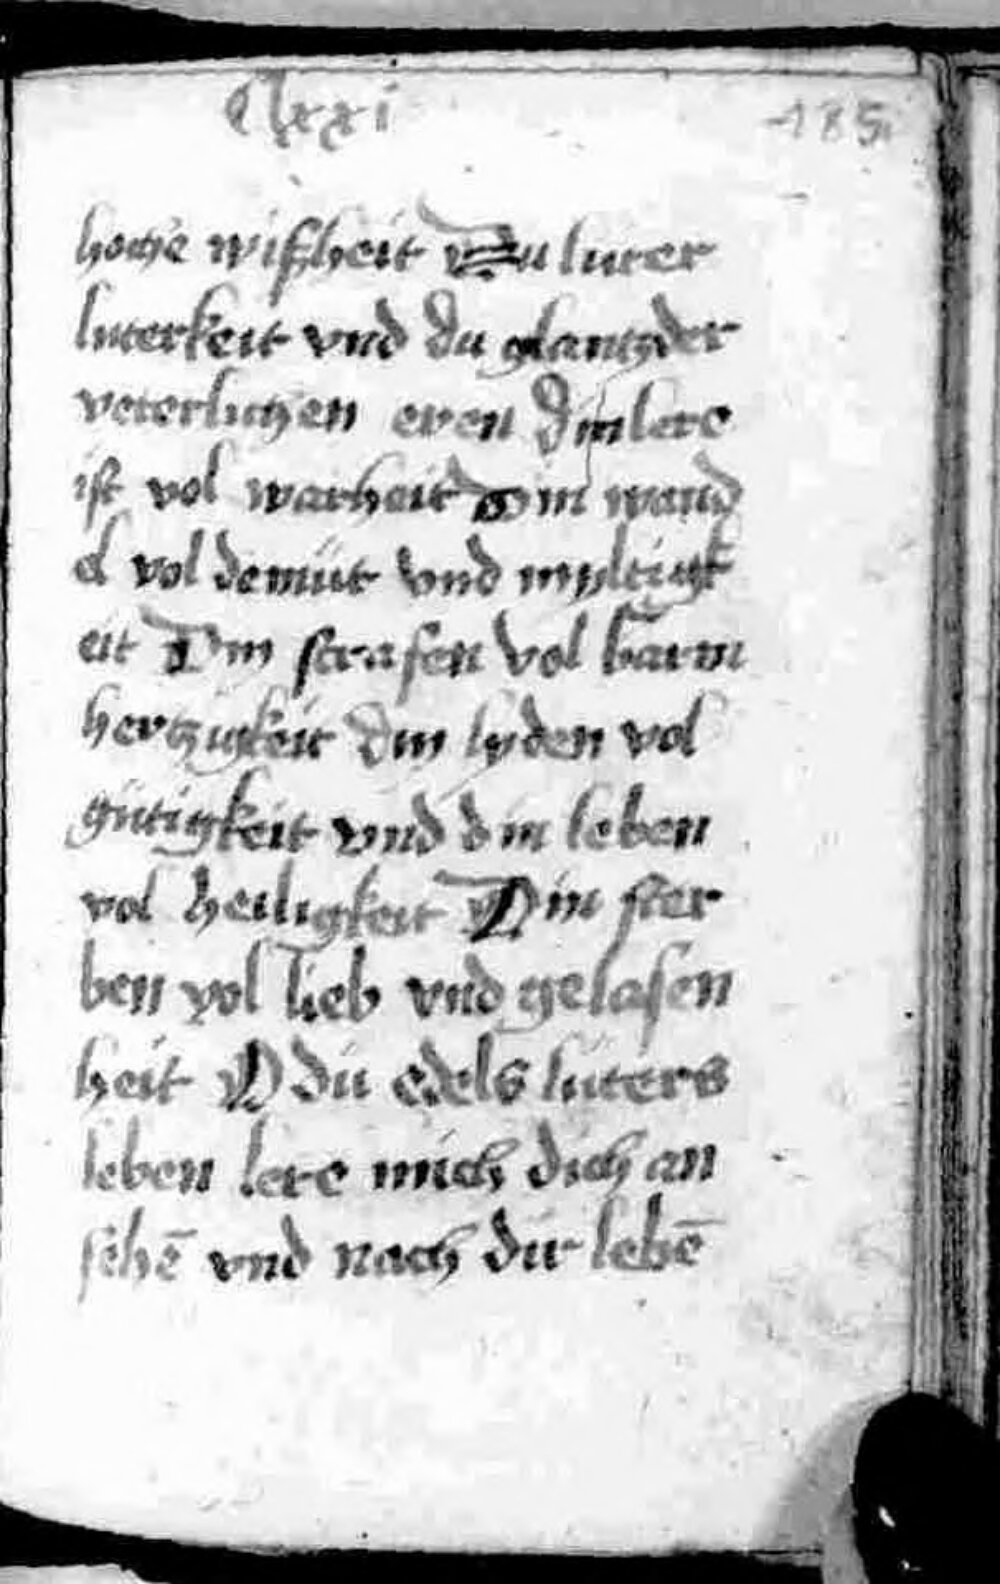 Clxxi 185
hoche wisheit Du luter
luterkeit vnd du glantz der
veterlichen eren din lere
ist vol warheit Din wand
el vol demüt vnd myltigk
eit Din strafen vol barm
hertzigkeit din lyden vol
gütigkeit vnd din leben
vol heiligkeit Din ster
ben vol lieb vnd gelasen
heit O du edels luters
leben lere mich dich an
sehē vnd nach dir lebē